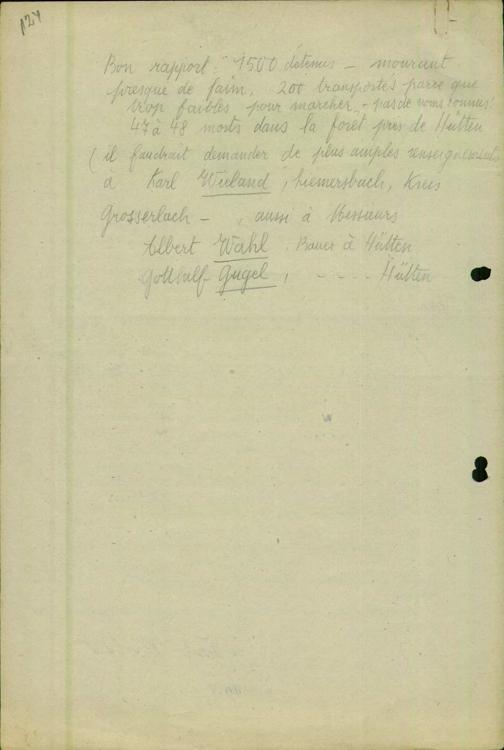 124
Bon rapport : 1500 détenus – mourant
presque de faim, 200 transportés parce que
trop faibles pour marcher. – pas de noms connus!
47 à 48 morts dans la forêt près de Hütten
(il faudrait demander de plus amples renseignements
à Karl Wieland, Liemersbach, Kreis
Grosserlach – , aussi à Messieurs
Albert Wahl, Bauer à Hütten
Gotthilf Gugel, - - - - Hütten